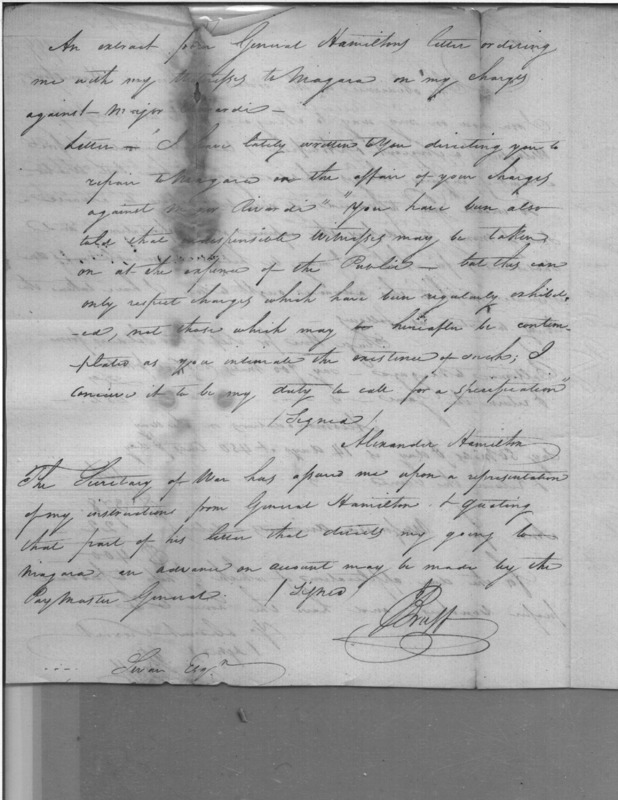 An extract from General Hamiltons letter ordering
me with my Witnesses to Niagara on my charges
against Major Rivardi —
Letter — "I have lately written to You directing you to
repair to Niagara on the affair of your charges
against Major Rivardi" "You have been also
told that indispensible Witnesses may be taken
on at the expense of the Public — but this can
only respect charges which have been regularly exhibit,
-ed, not those which may be hereafter be contem
plated as you intimate the existence of such; I
conceive it to be my duty to call for a specification"
/ Signed /
Alexander Hamilton
The Secretary of War has assured me upon a representation
of my instructions from General Hamilton & quoting
that part of his letter that directs my going to
Niagara an advance on account may be made by the
PayMaster General. / Signed
JBruff
Swan Esqr